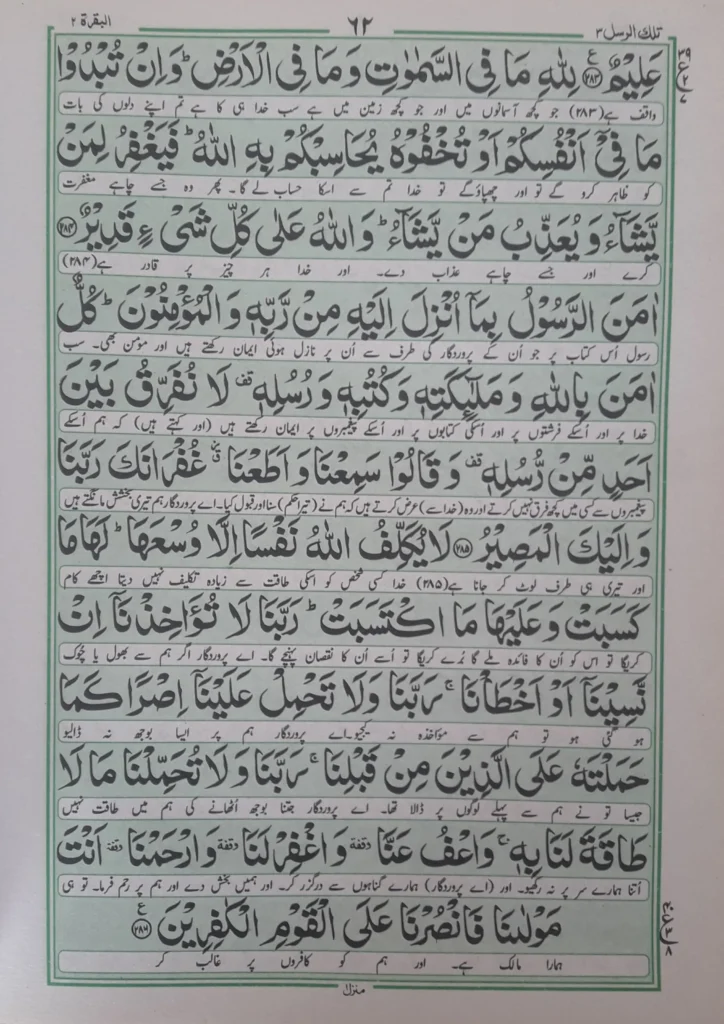 تلك الرسل ٣
٦٢
البقرة ٢
عَلِيْمٌ ﴿٢٨٣﴾ لِلّٰهِ مَا فِى السَّمٰوٰتِ وَمَا فِى الْاَرْضِ ؕ وَاِنْ تُبْدُوْا
واقف ہے (۲۸۳) جو کچھ آسمانوں میں اور جو کچھ زمین میں ہے سب خدا ہی کا ہے تم اپنے دلوں کی بات
مَا فِىْٓ اَنْفُسِكُمْ اَوْ تُخْفُوْهُ يُحَاسِبْكُمْ بِهِ اللّٰهُ ؕ فَيَغْفِرُ لِمَنْ
کو ظاہر کرو گے تو اور چھپاؤ گے تو خدا تم سے اسکا حساب لے گا۔ پھر وہ جسے چاہے مغفرت
يَّشَآءُ وَيُعَذِّبُ مَنْ يَّشَآءُ ؕ وَاللّٰهُ عَلٰى كُلِّ شَىْءٍ قَدِيْرٌ ﴿٢٨٤﴾
کرے اور جسے چاہے عذاب دے۔ اور خدا ہر چیز پر قادر ہے (۲۸۴)
اٰمَنَ الرَّسُوْلُ بِمَآ اُنْزِلَ اِلَيْهِ مِنْ رَّبِّهٖ وَالْمُؤْمِنُوْنَ ؕ كُلٌّ
رسول اُس کتاب پر جو اُن کے پروردگار کی طرف سے اُن پر نازل ہوئی ایمان رکھتے ہیں اور مومن بھی۔ سب
اٰمَنَ بِاللّٰهِ وَمَلٰٓئِكَتِهٖ وَكُتُبِهٖ وَرُسُلِهٖ قف لَا نُفَرِّقُ بَيْنَ
خدا پر اور اُسکے فرشتوں پر اور اُسکی کتابوں پر اور اُسکے پیغمبروں پر ایمان رکھتے ہیں (اور کہتے ہیں) کہ ہم اُسکے
اَحَدٍ مِّنْ رُّسُلِهٖ قف وَقَالُوْا سَمِعْنَا وَاَطَعْنَا غُفْرَانَكَ رَبَّنَا
پیغمبروں سے کسی میں کچھ فرق نہیں کرتے اور وہ (خدا سے) عرض کرتے ہیں کہ ہم نے (تیرا حکم) سنا اور قبول کیا۔ اے پروردگار ہم تیری بخشش مانگتے ہیں
وَاِلَيْكَ الْمَصِيْرُ ﴿٢٨٥﴾ لَا يُكَلِّفُ اللّٰهُ نَفْسًا اِلَّا وُسْعَهَا ؕ لَهَا مَا
اور تیری ہی طرف لوٹ کر جانا ہے (۲۸۵) خدا کسی شخص کو اسکی طاقت سے زیادہ تکلیف نہیں دیتا اچھے کام
كَسَبَتْ وَعَلَيْهَا مَا اكْتَسَبَتْ ؕ رَبَّنَا لَا تُؤَاخِذْنَآ اِنْ
کریگا تو اس کو اُن کا فائدہ ملے گا بُرے کریگا تو اُسے اُن کا نقصان پہنچے گا۔ اے پروردگار اگر ہم سے بھول یا چوک
نَّسِيْنَآ اَوْ اَخْطَاْنَا ۚ رَبَّنَا وَلَا تَحْمِلْ عَلَيْنَآ اِصْرًا كَمَا
ہو گئی ہو تو ہم سے مؤاخذہ نہ کیجیو۔ اے پروردگار ہم پر ایسا بوجھ نہ ڈالیو
حَمَلْتَهٗ عَلَى الَّذِيْنَ مِنْ قَبْلِنَا ۚ رَبَّنَا وَلَا تُحَمِّلْنَا مَا لَا
جیسا تو نے ہم سے پہلے لوگوں پر ڈالا تھا۔ اے پروردگار جتنا بوجھ اُٹھانے کی ہم میں طاقت نہیں
طَاقَةَ لَنَا بِهٖ ۚ وَاعْفُ عَنَّا وقفة وَاغْفِرْ لَنَا وقفة وَارْحَمْنَا وقفة اَنْتَ
اُتنا ہمارے سر پر نہ رکھیو۔ اور (اے پروردگار) ہمارے گناہوں سے درگزر کر۔ اور ہمیں بخش دے اور ہم پر رحم فرما۔ تو ہی
مَوْلٰىنَا فَانْصُرْنَا عَلَى الْقَوْمِ الْكٰفِرِيْنَ ﴿٢٨٦﴾
ہمارا مالک ہے۔ اور ہم کو کافروں پر غالب کر
منزل